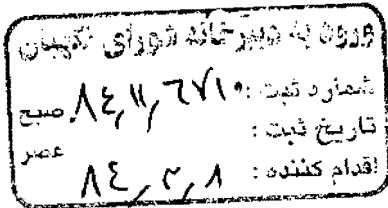 ورود به دبیرخانه شورای نگهبان
شماره ثبت: ۸۴,۱۱,۶۷۱۰ صبح
تاریخ ثبت: عصر
اقدام کننده: ۸۴,۳,۸